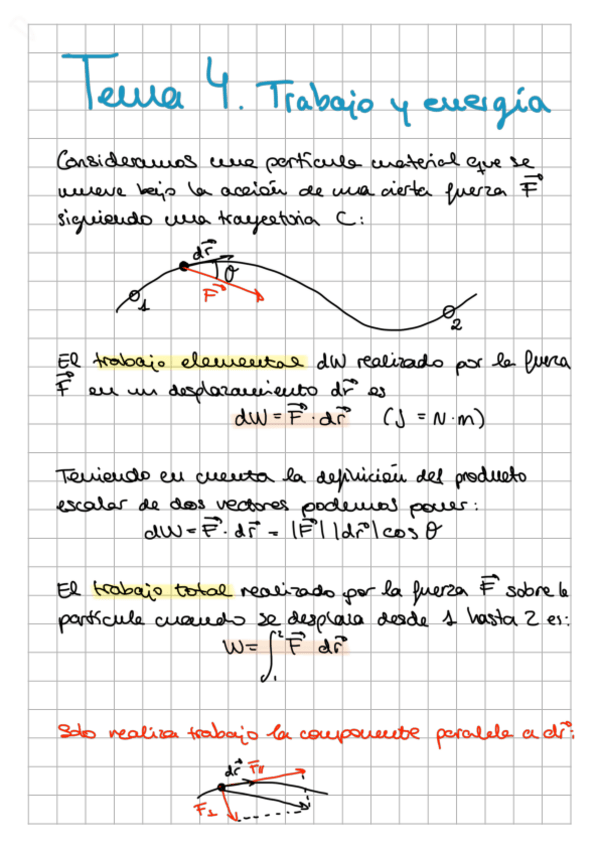 Tema 4. Trabajo y energía
Consideramos una partícula material que se
mueve bajo la acción de una cierta fuerza F⃗
siguiendo una trayectoria C:
dr⃗
θ
F⃗
1
2
El trabajo elemental dW realizado por la fuerza
F⃗ en un desplazamiento dr⃗ es
dW = F⃗ · dr⃗ (J = N·m)
Teniendo en cuenta la definición del producto
escalar de dos vectores podemos poner:
dW = F⃗ · dr⃗ = |F⃗| |dr⃗| cos θ
El trabajo total realizado por la fuerza F⃗ sobre la
partícula cuando se desplaza desde 1 hasta 2 es:
W = ∫₁² F⃗ dr⃗
Solo realiza trabajo la componente paralela a dr⃗:
dr⃗ F⃗∥
F⊥